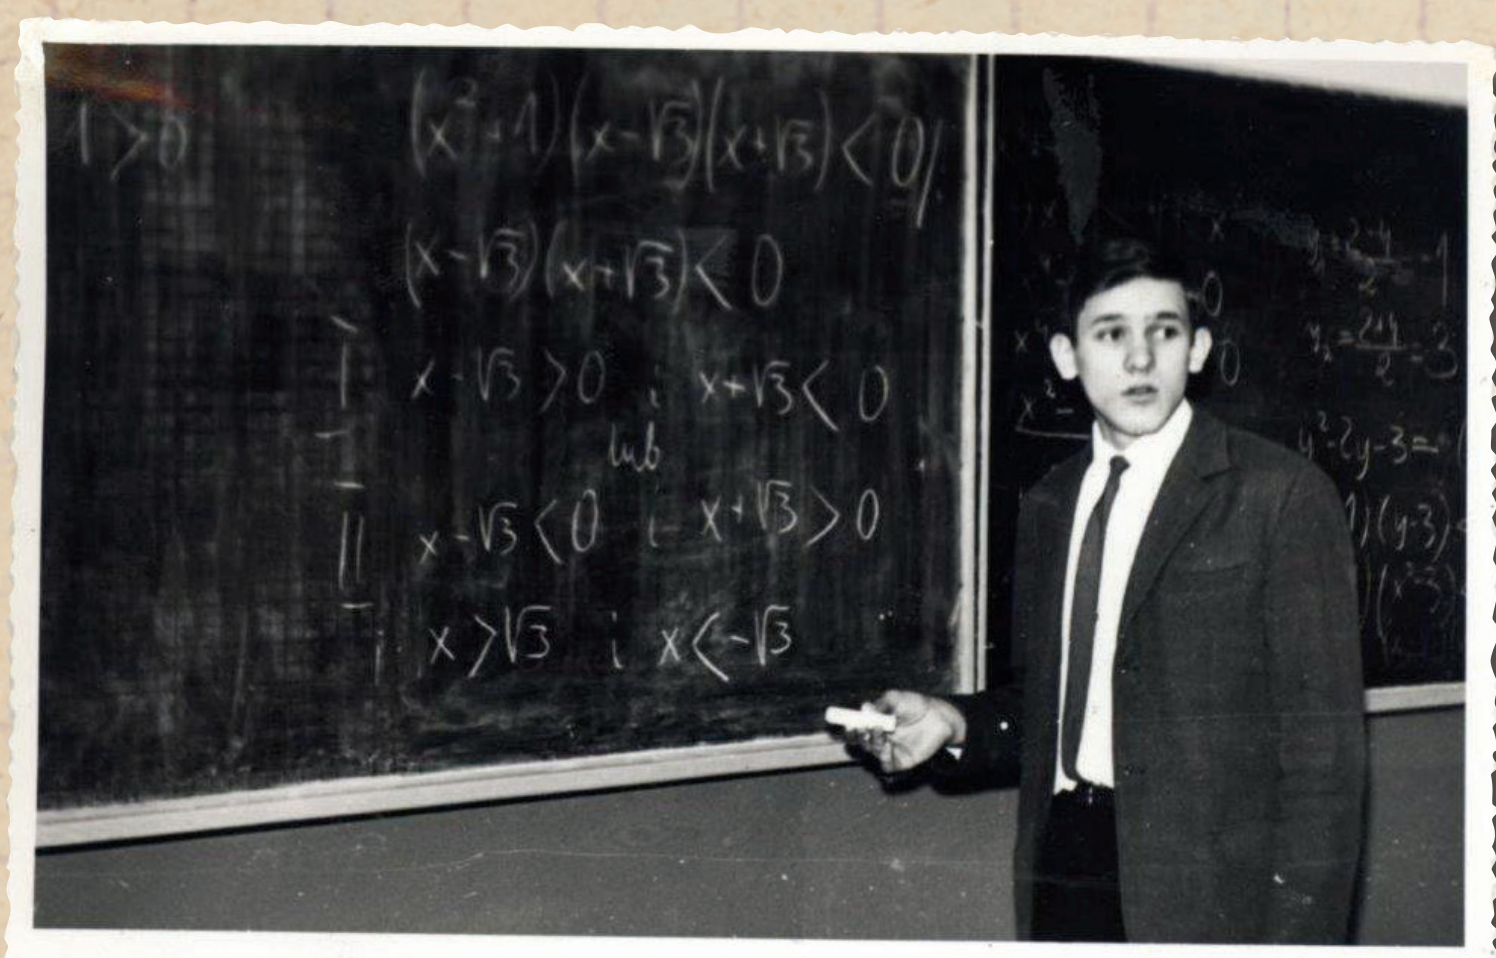 1 > 0
(x² + 1)(x - √3)(x + √3) < 0 /:
(x - √3)(x + √3) < 0
I x - √3 > 0 i x + √3 < 0
lub
II x - √3 < 0 i x + √3 > 0
i x > √3 i x < -√3
x
0
y₁ = 2-4/2 = -1
x⁴
0
y₂ = 2+4/2 = 3
x² -
y² - 2y - 3 =
1)(y-3) <
)(x²-3) <